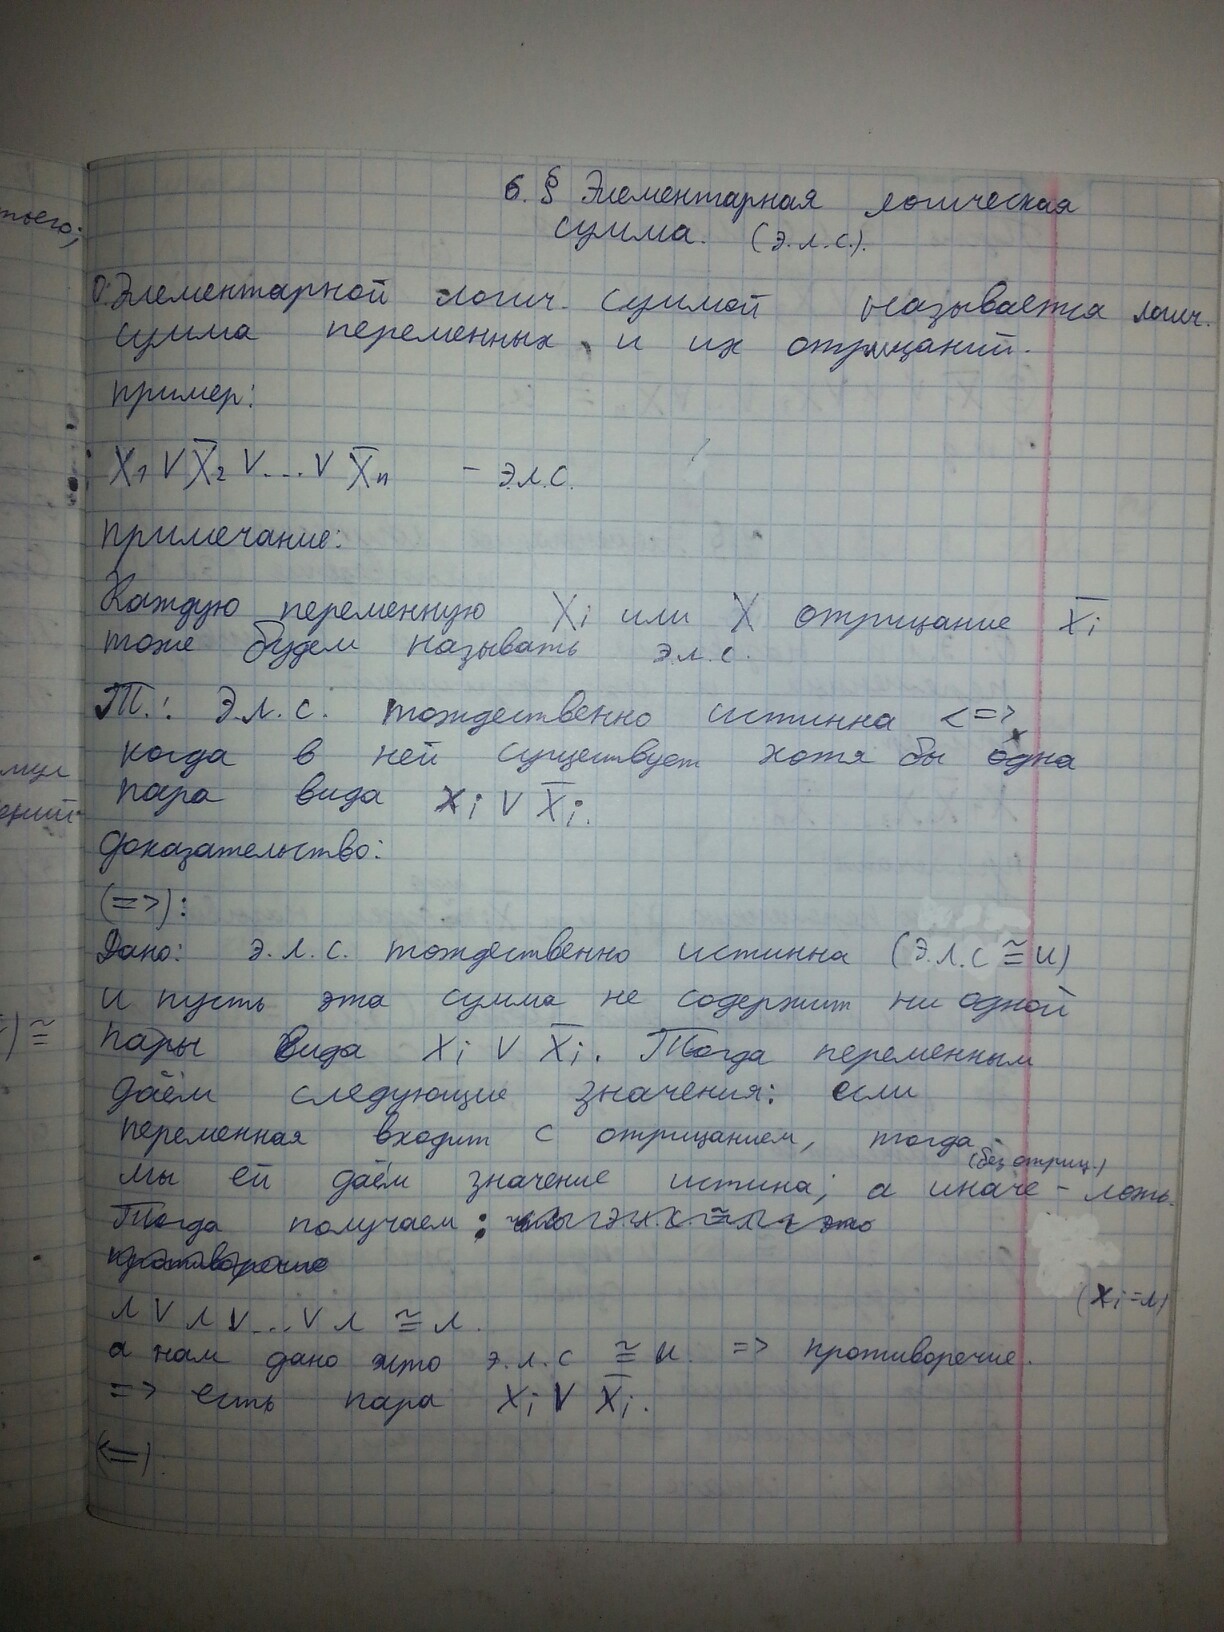 тьего;
6. § Элементарная логическая
сумма. (э.л.с.).
О: Элементарной логич. суммой называется логич.
сумма переменных и их отрицаний.
пример:
X₁ V X̅₂ V ... V X̅ₙ - э.л.с.
примечание:
Каждую переменную Xᵢ или X отрицание X̅ᵢ
тоже будем называть э.л.с.
Т.: Э.л.с. тождественно истинна <=>,
когда в ней существует хотя бы одна
пара вида Xᵢ V X̅ᵢ.
доказательство:
(=>):
Дано: э.л.с. тождественно истинна (э.л.с ≅ и)
и пусть эта сумма не содержит ни одной
пары вида Xᵢ V X̅ᵢ. Тогда переменным
даём следующие значения: если
переменная входит с отрицанием, тогда
(без отриц.)
мы ей даём значение истина; а иначе - ложь.
Тогда получаем:
противоречие
(Xᵢ=л)
л V л V ... V л ≅ л.
а нам дано что э.л.с ≅ и. => противоречие.
=> есть пара Xᵢ V X̅ᵢ.
(<=)